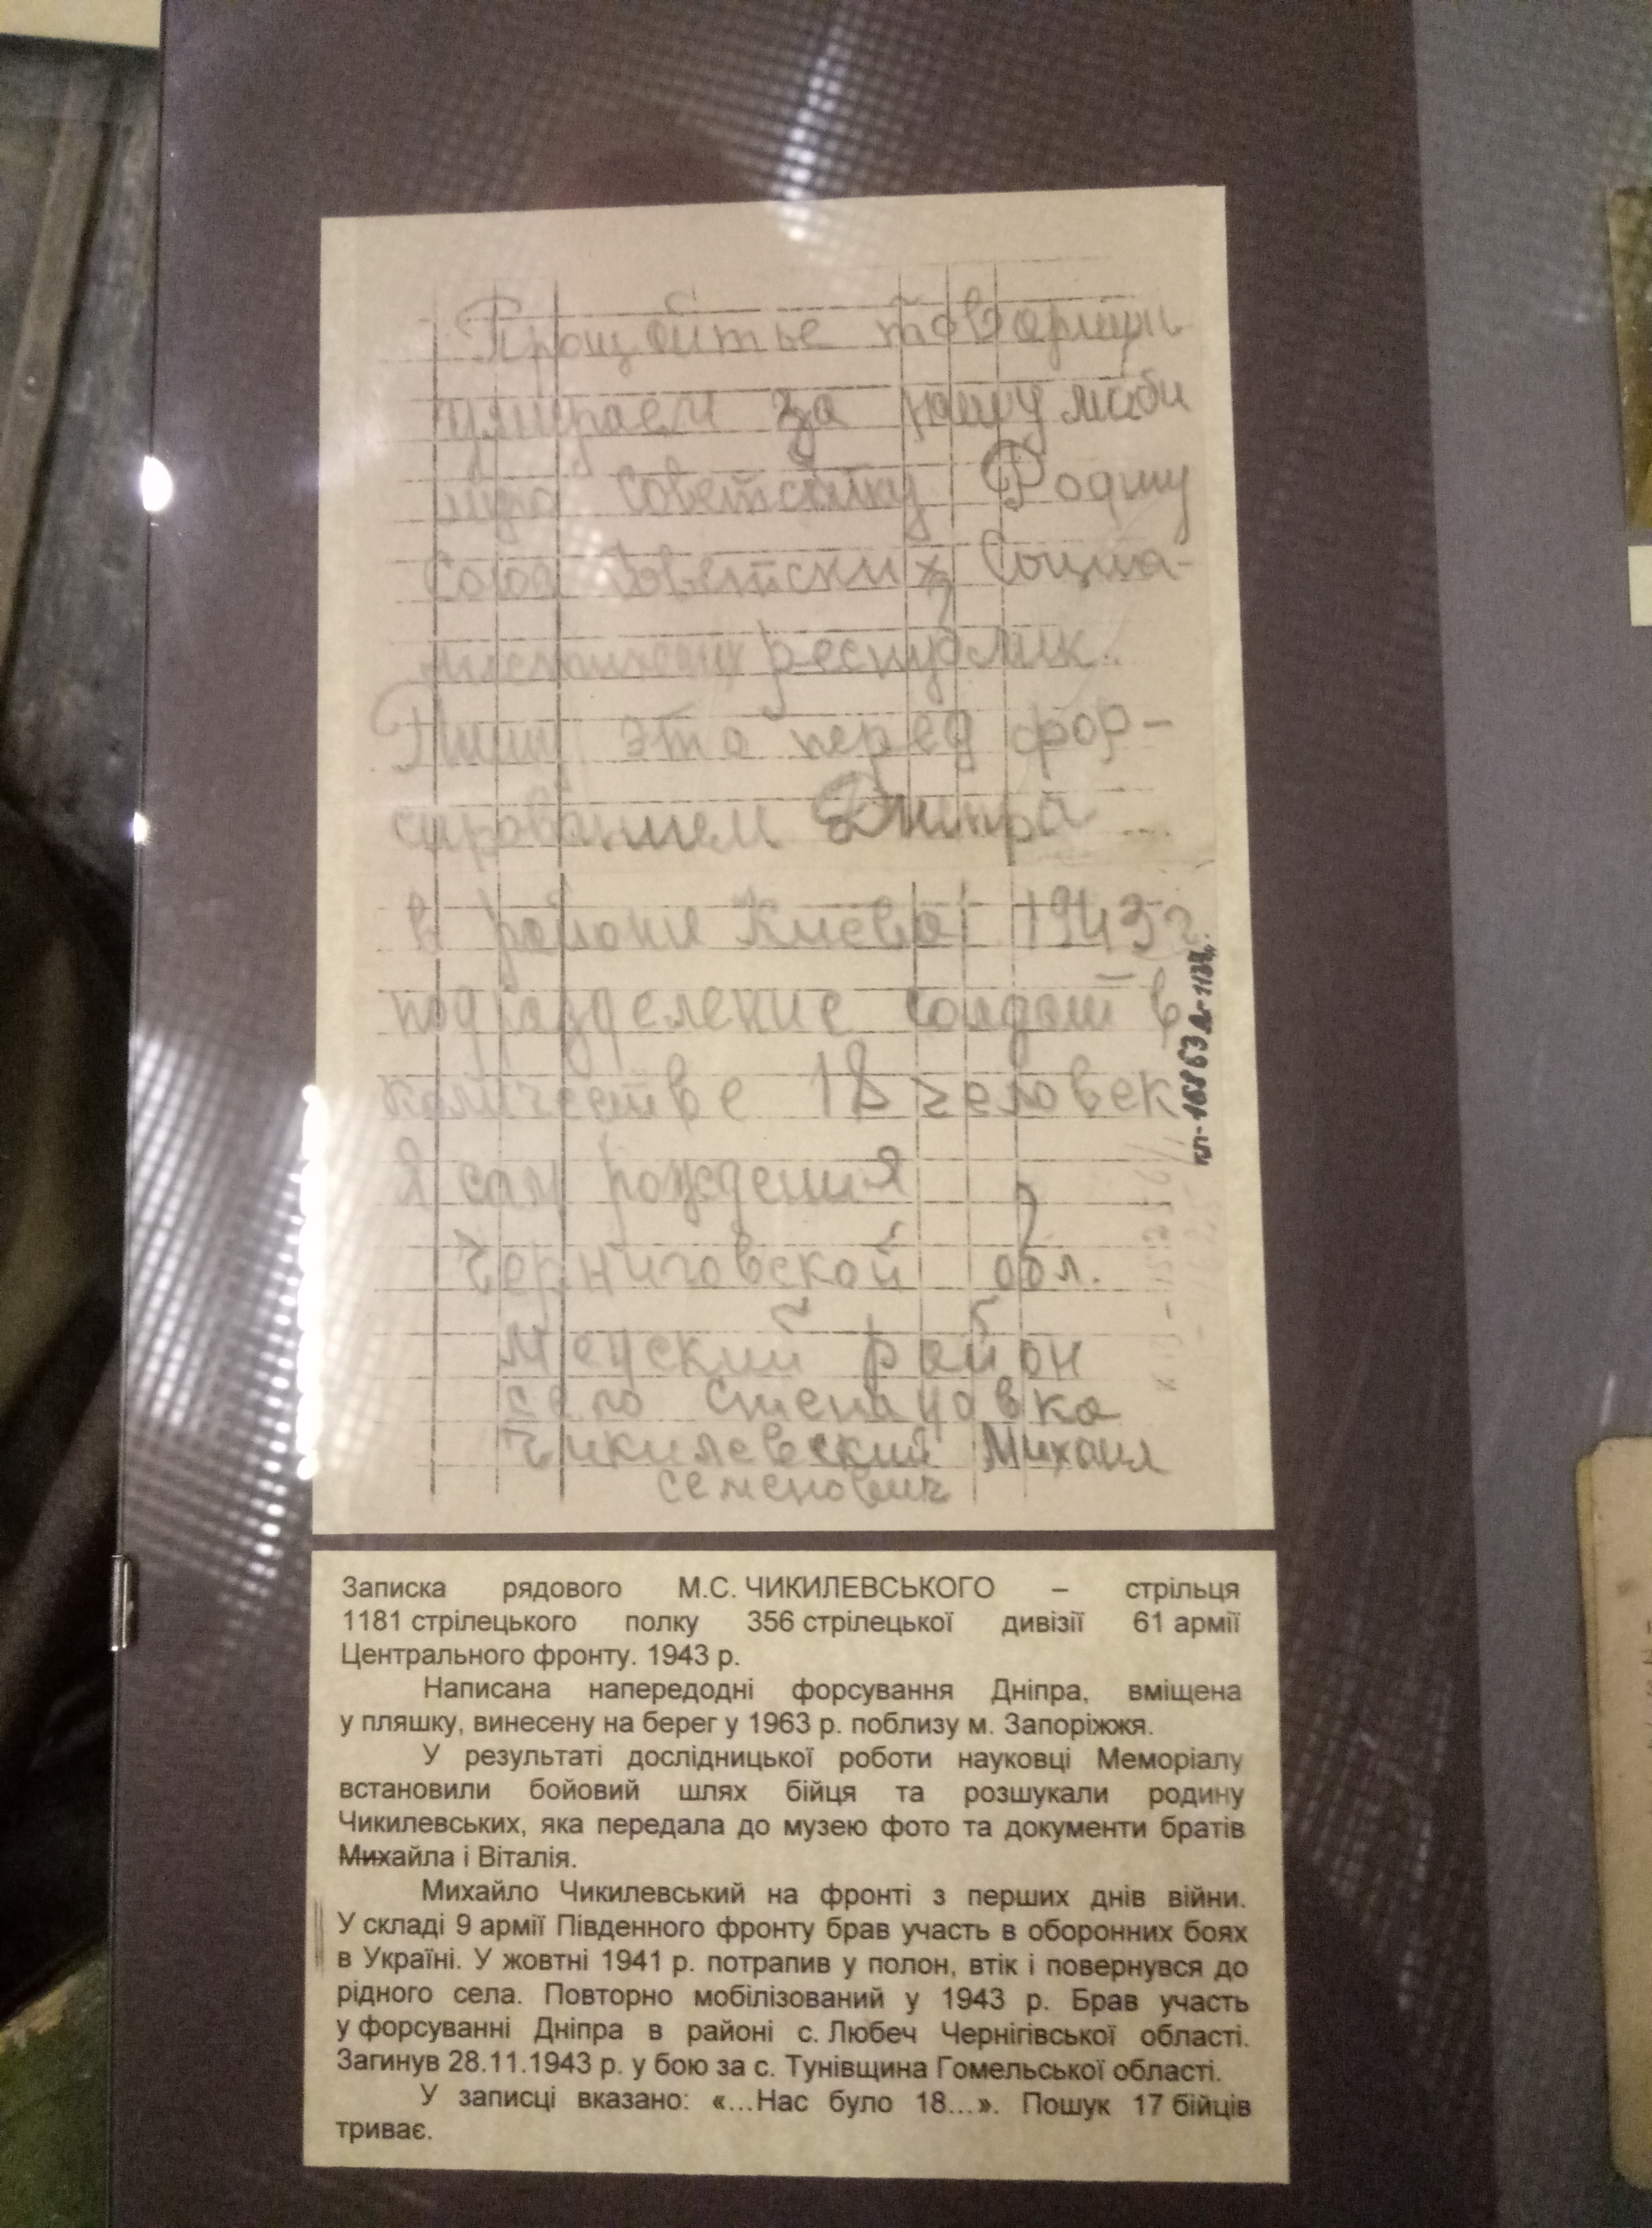 Прощайтье товорищи
умираем за нашу люби
мую Советскую Родину
Союз Советских Социа-
листических республик.
Пишу это перед фор-
сированием Днипра
в районе Киева 1943 г.
подразделение солдат в
количестве 18 человек
Я сам рождения
Черниговской обл.
Менский район
село Степановка
Чикилевский Михаил
Семенович
кп-16863 Д-
Записка рядового М.С. ЧИКИЛЕВСЬКОГО – стрільця
1181 стрілецького полку 356 стрілецької дивізії 61 армії
Центрального фронту. 1943 р.
Написана напередодні форсування Дніпра, вміщена
у пляшку, винесену на берег у 1963 р. поблизу м. Запоріжжя.
У результаті дослідницької роботи науковці Меморіалу
встановили бойовий шлях бійця та розшукали родину
Чикилевських, яка передала до музею фото та документи братів
Михайла і Віталія.
Михайло Чикилевський на фронті з перших днів війни.
У складі 9 армії Південного фронту брав участь в оборонних боях
в Україні. У жовтні 1941 р. потрапив у полон, втік і повернувся до
рідного села. Повторно мобілізований у 1943 р. Брав участь
у форсуванні Дніпра в районі с. Любеч Чернігівської області.
Загинув 28.11.1943 р. у бою за с. Тунівщина Гомельської області.
У записці вказано: «...Нас було 18...». Пошук 17 бійців
триває.